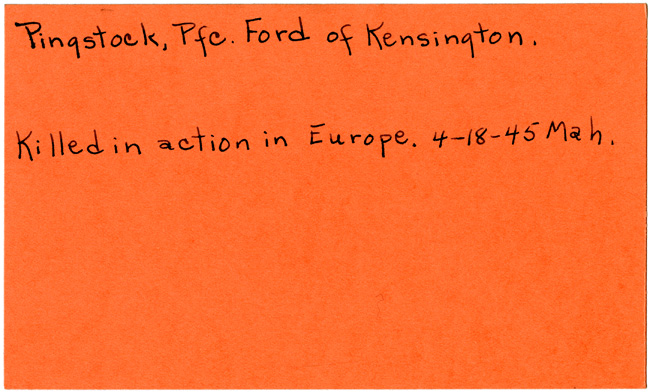 Pingstock, Pfc. Ford of Kensington.
Killed in action in Europe. 4-18-45 Mah.